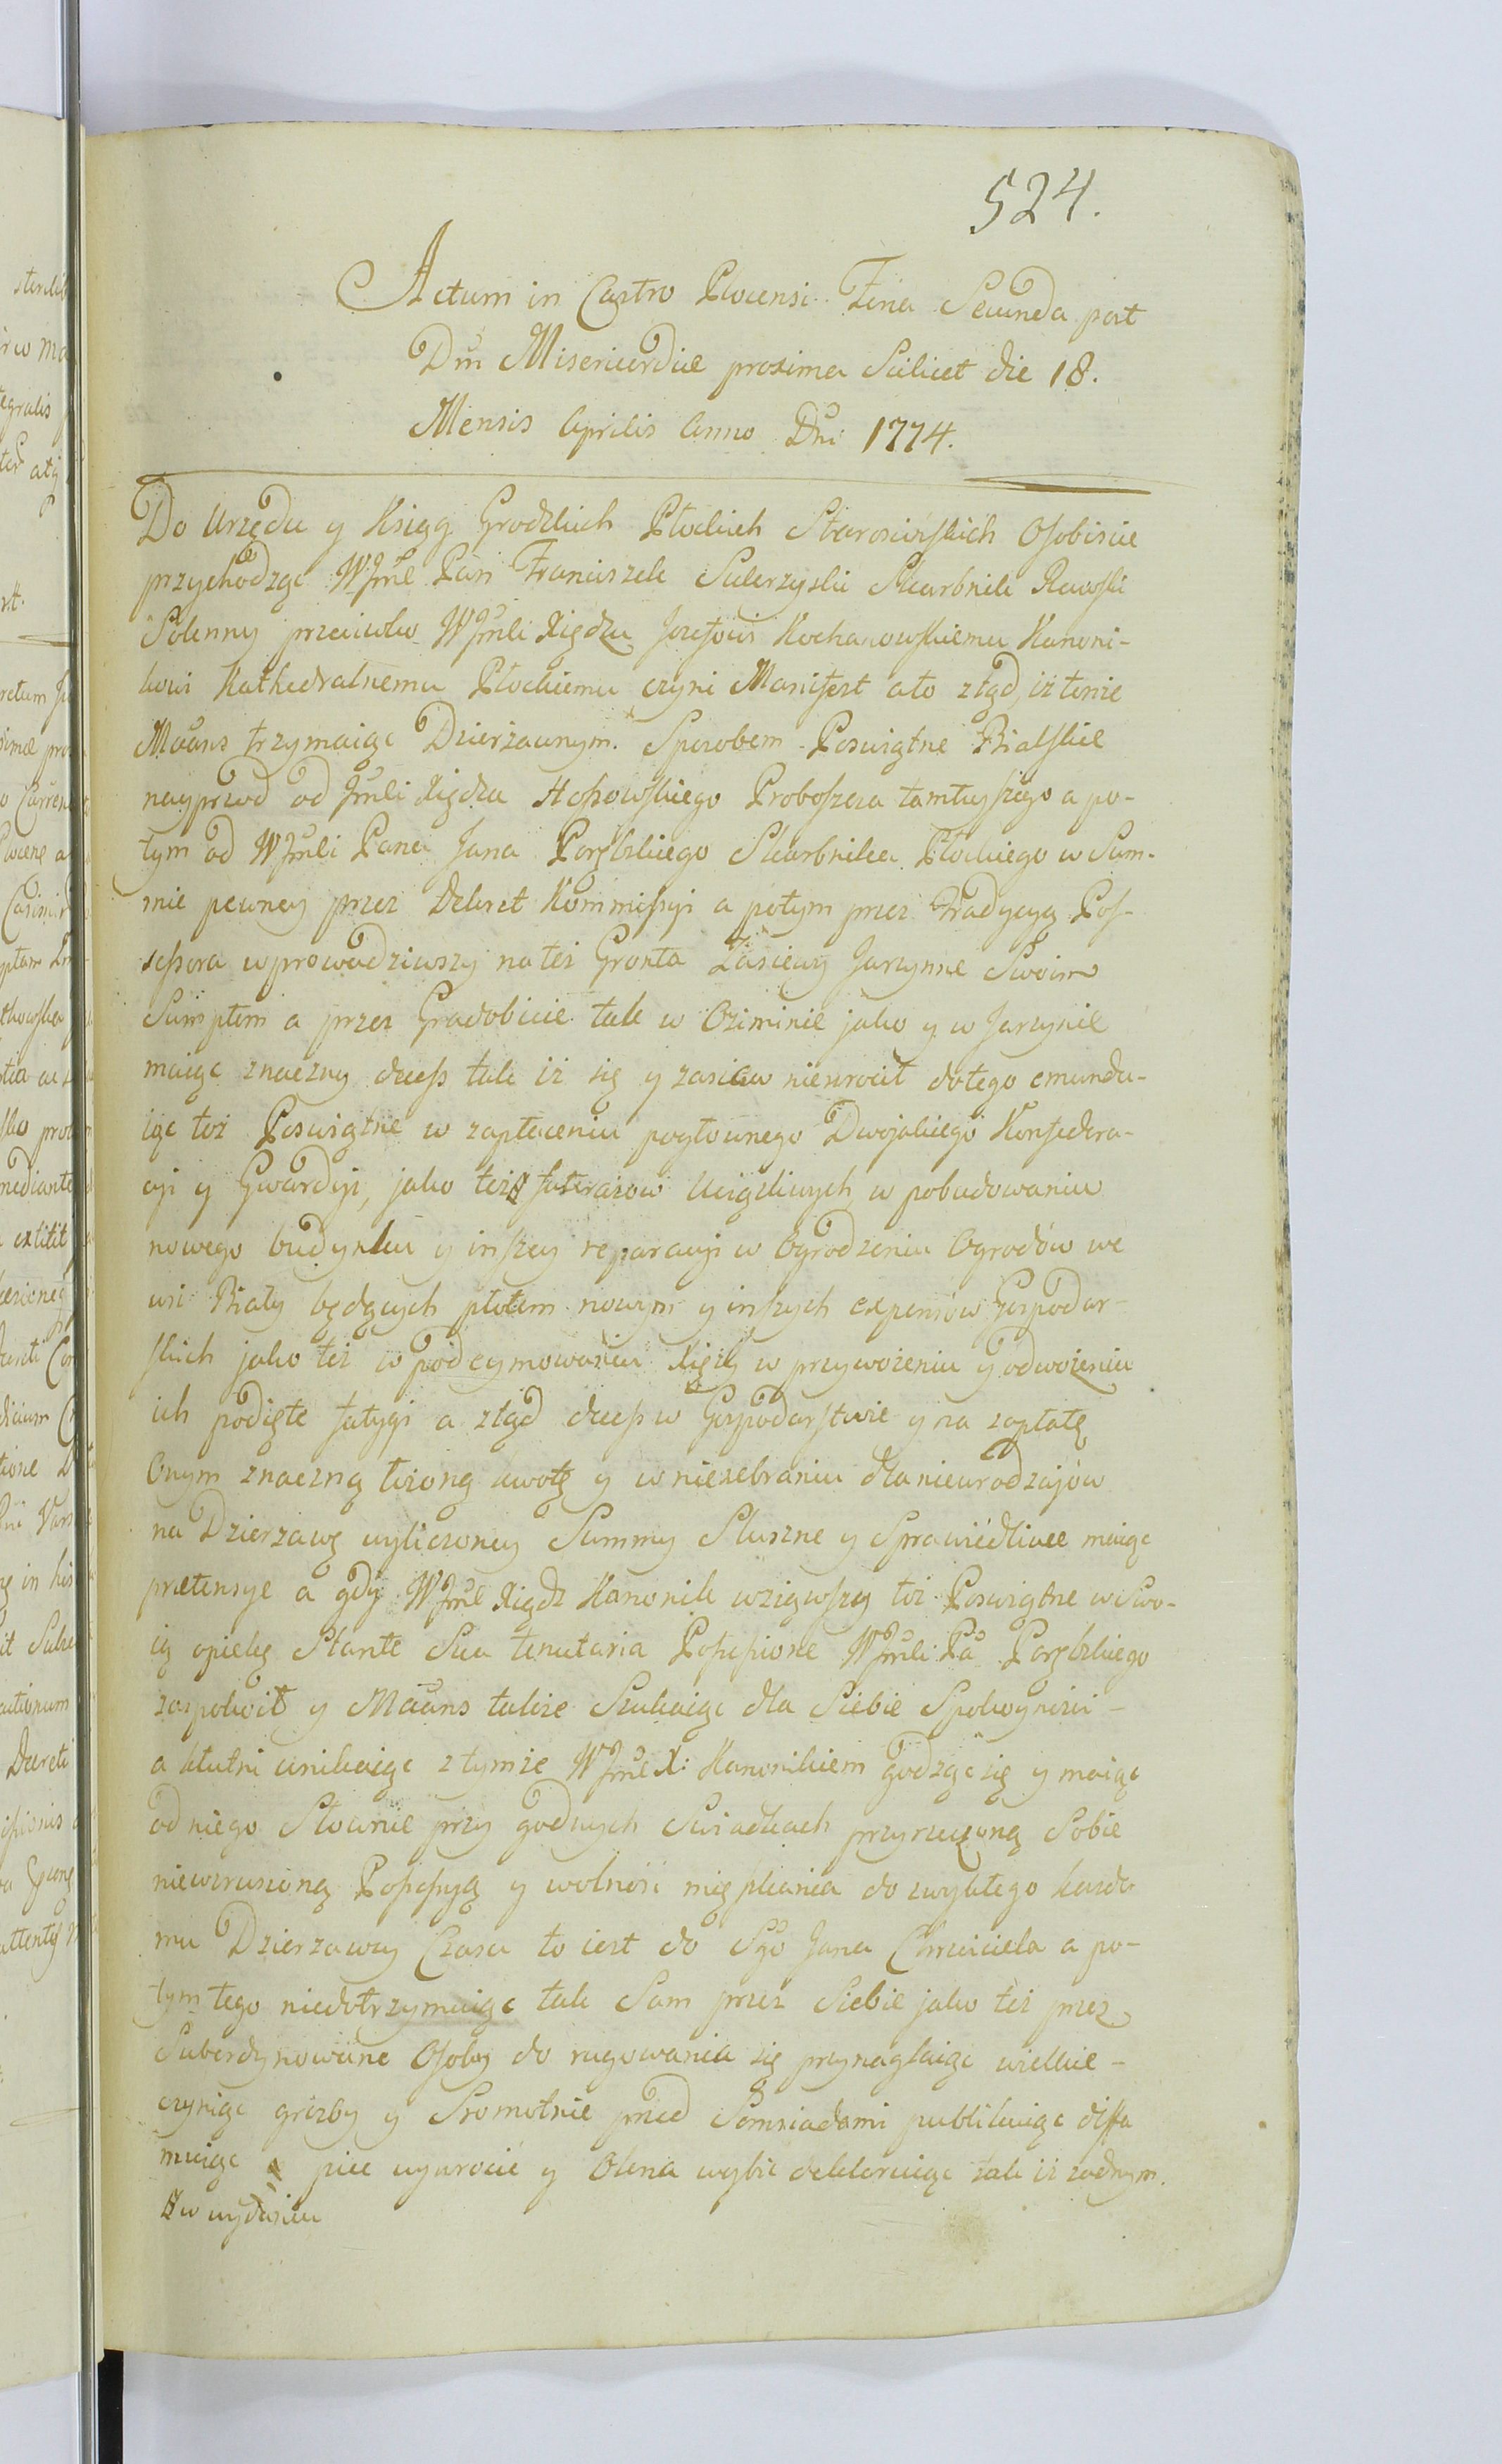 524.
Actum in Castro Plocensi Feria Secunda post
Dm̃ Misericordiæ proxima Scilicet die 18.
Mensis Aprilis Anno Dni 1774.
Do Urzędu y Xiąg Grodzkich Płockich Starościnskich Osobiscie
przychodząc WJmć Pan Franciszek Sulerzyski Skarbnik Rawski
Solenny przeciwko WJmći Xiędzu Jozefowi Kochanowskiemu Kanoni-
kowi Kathedralnemu Płockiemu czyni Manifest a to ztąd, iż tenże
Maans trzymaiąc Dzierżawnym Sposobem Poswiątne Bialskie
nayprzod od Jmći Xiędza Proboszcza tamtuyszego a po-
tym od WJmći Pana Jana Porębskiego Skarbnika Płockiego w Sum-
mie pewney przez Dekret Kommissyi a potym przez Tradycyą Pos-
sessora wprowadziwszy na też Gronta Zasiewy Jarzynne Swoim
Sumptem a przez Gradobicie tak w Oziminie jako y w Jarzynie
maiąc znaczny decess tak iż się y zasiew niewrocił do tego emundu-
iąc toż Poswiątne w zapłaceniu pogłownego Dwojakiego Konfedera-
cyi y Gwardyi, jako też furażow Uciążliwych w pobudowaniu
nowego budynku y inszey reparacyi w Ogrodzeniu Ogrodów we
wsi Biały będących płotem nowym y inszych expensów Gospodar-
skich jako też w podeymowaniu Xięży w przywożeniu y odwożeniu
ich podięte fatygi a ztąd decess w Gospodarstwie y na zapłatę
Onym znaczną łożoną kwotę y w niezebraniu dla nieurodzajów
na Dzierzawę wyliczoney Summy Słuszne y Sprawiedliwe maiąc
prætensye a gdy WJmć Xiądz Kanonik wziąwszy toż Poswiątne w Swo-
ią opiekę Stante Sua tenutaria Possessione WJmći Pa Porębskiego
zaspokoił y Maans także Szukaiąc dla Siebie Spokoyności
a kłutni unikaiąc z tymże WJmć X: Kanonikiem godząc się y maiąc
od niego Słownie przy godnych Swiadkach przyrzeczoną Sobie
niewzruszoną Possessyą y wolność mięszkania do zwykłego każde
mu Dzierzawcy Czasu to iest do Sgo Jana Chrzciciela a po-
tym tego niedotrzymuiąc tak Sam przez Siebie jako też przez
Subordynowane Osoby do rugowania się przynaglaiąc wielkie
czyniąc grozby y Sromotnie przed Sąmsiadami publikuiąc diffa
muiąc piec wywrocić y Okna wybić deklaruiąc tak iż żadnym
w wydaniu